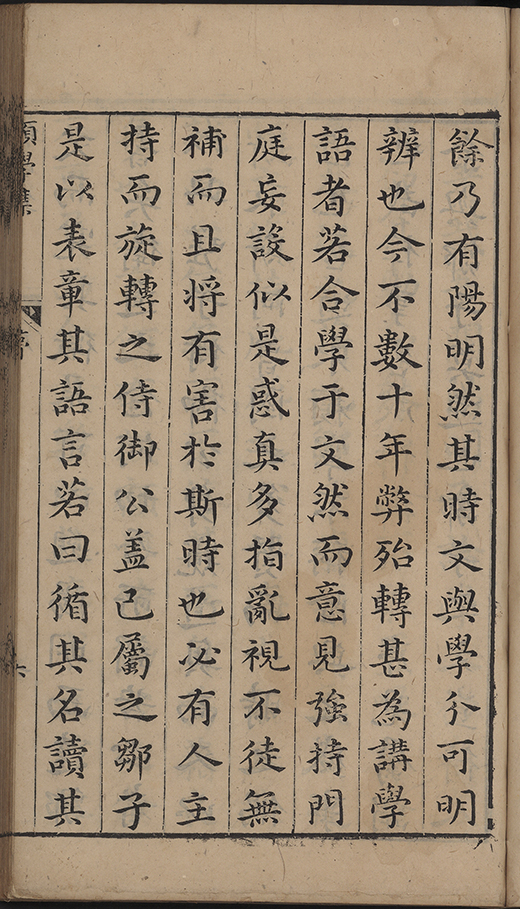 餘乃有陽明然其時文與學分可明
辨也今不數十年弊殆轉甚為講學
語者若合學于文然而意見強持門
庭妄設似是惑真多指亂視不徒無
補而且將有害於斯時也必有人主
持而旋轉之侍御公盖已屬之鄒子
是以表章其語言若曰循其名讀其
願學集
序
六